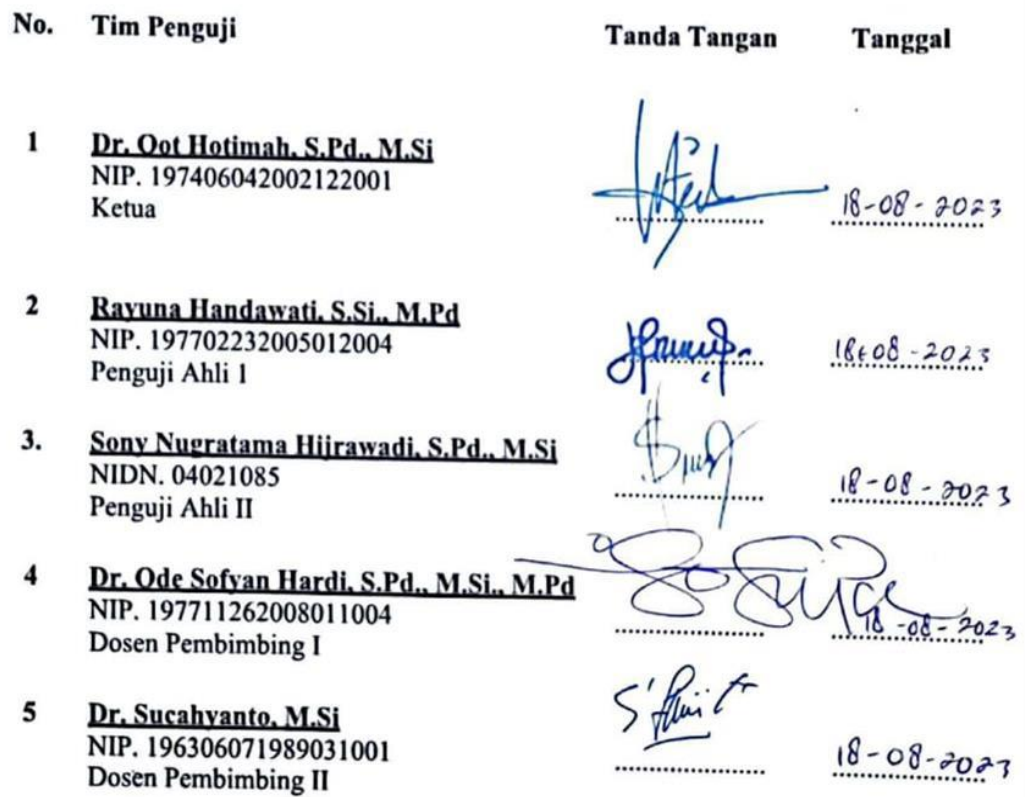 No. Tim Penguji Tanda Tangan Tanggal
1 Dr. Oot Hotimah, S.Pd., M.Si
NIP. 197406042002122001
Ketua 18-08-2023
2 Rayuna Handawati, S.Si., M.Pd
NIP. 197702232005012004 18-08-2023
Penguji Ahli 1
3. Sony Nugratama Hijrawadi, S.Pd., M.Si
NIDN. 04021085 18-08-2023
Penguji Ahli II
4 Dr. Ode Sofyan Hardi, S.Pd., M.Si., M.Pd
NIP. 197711262008011004 18-08-2023
Dosen Pembimbing I
5 Dr. Sucahyanto, M.Si
NIP. 196306071989031001 18-08-2023
Dosen Pembimbing II